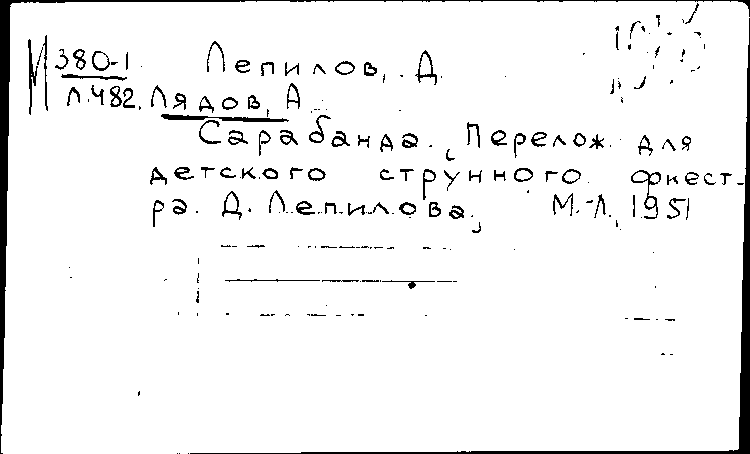 М 380-1 Лепилов, Д.
Л.482. Лядов, А.
Сарабанда. Перелож. для
детского струнного оркест-
ра. Д. Лепилова, М.-Л., 1951